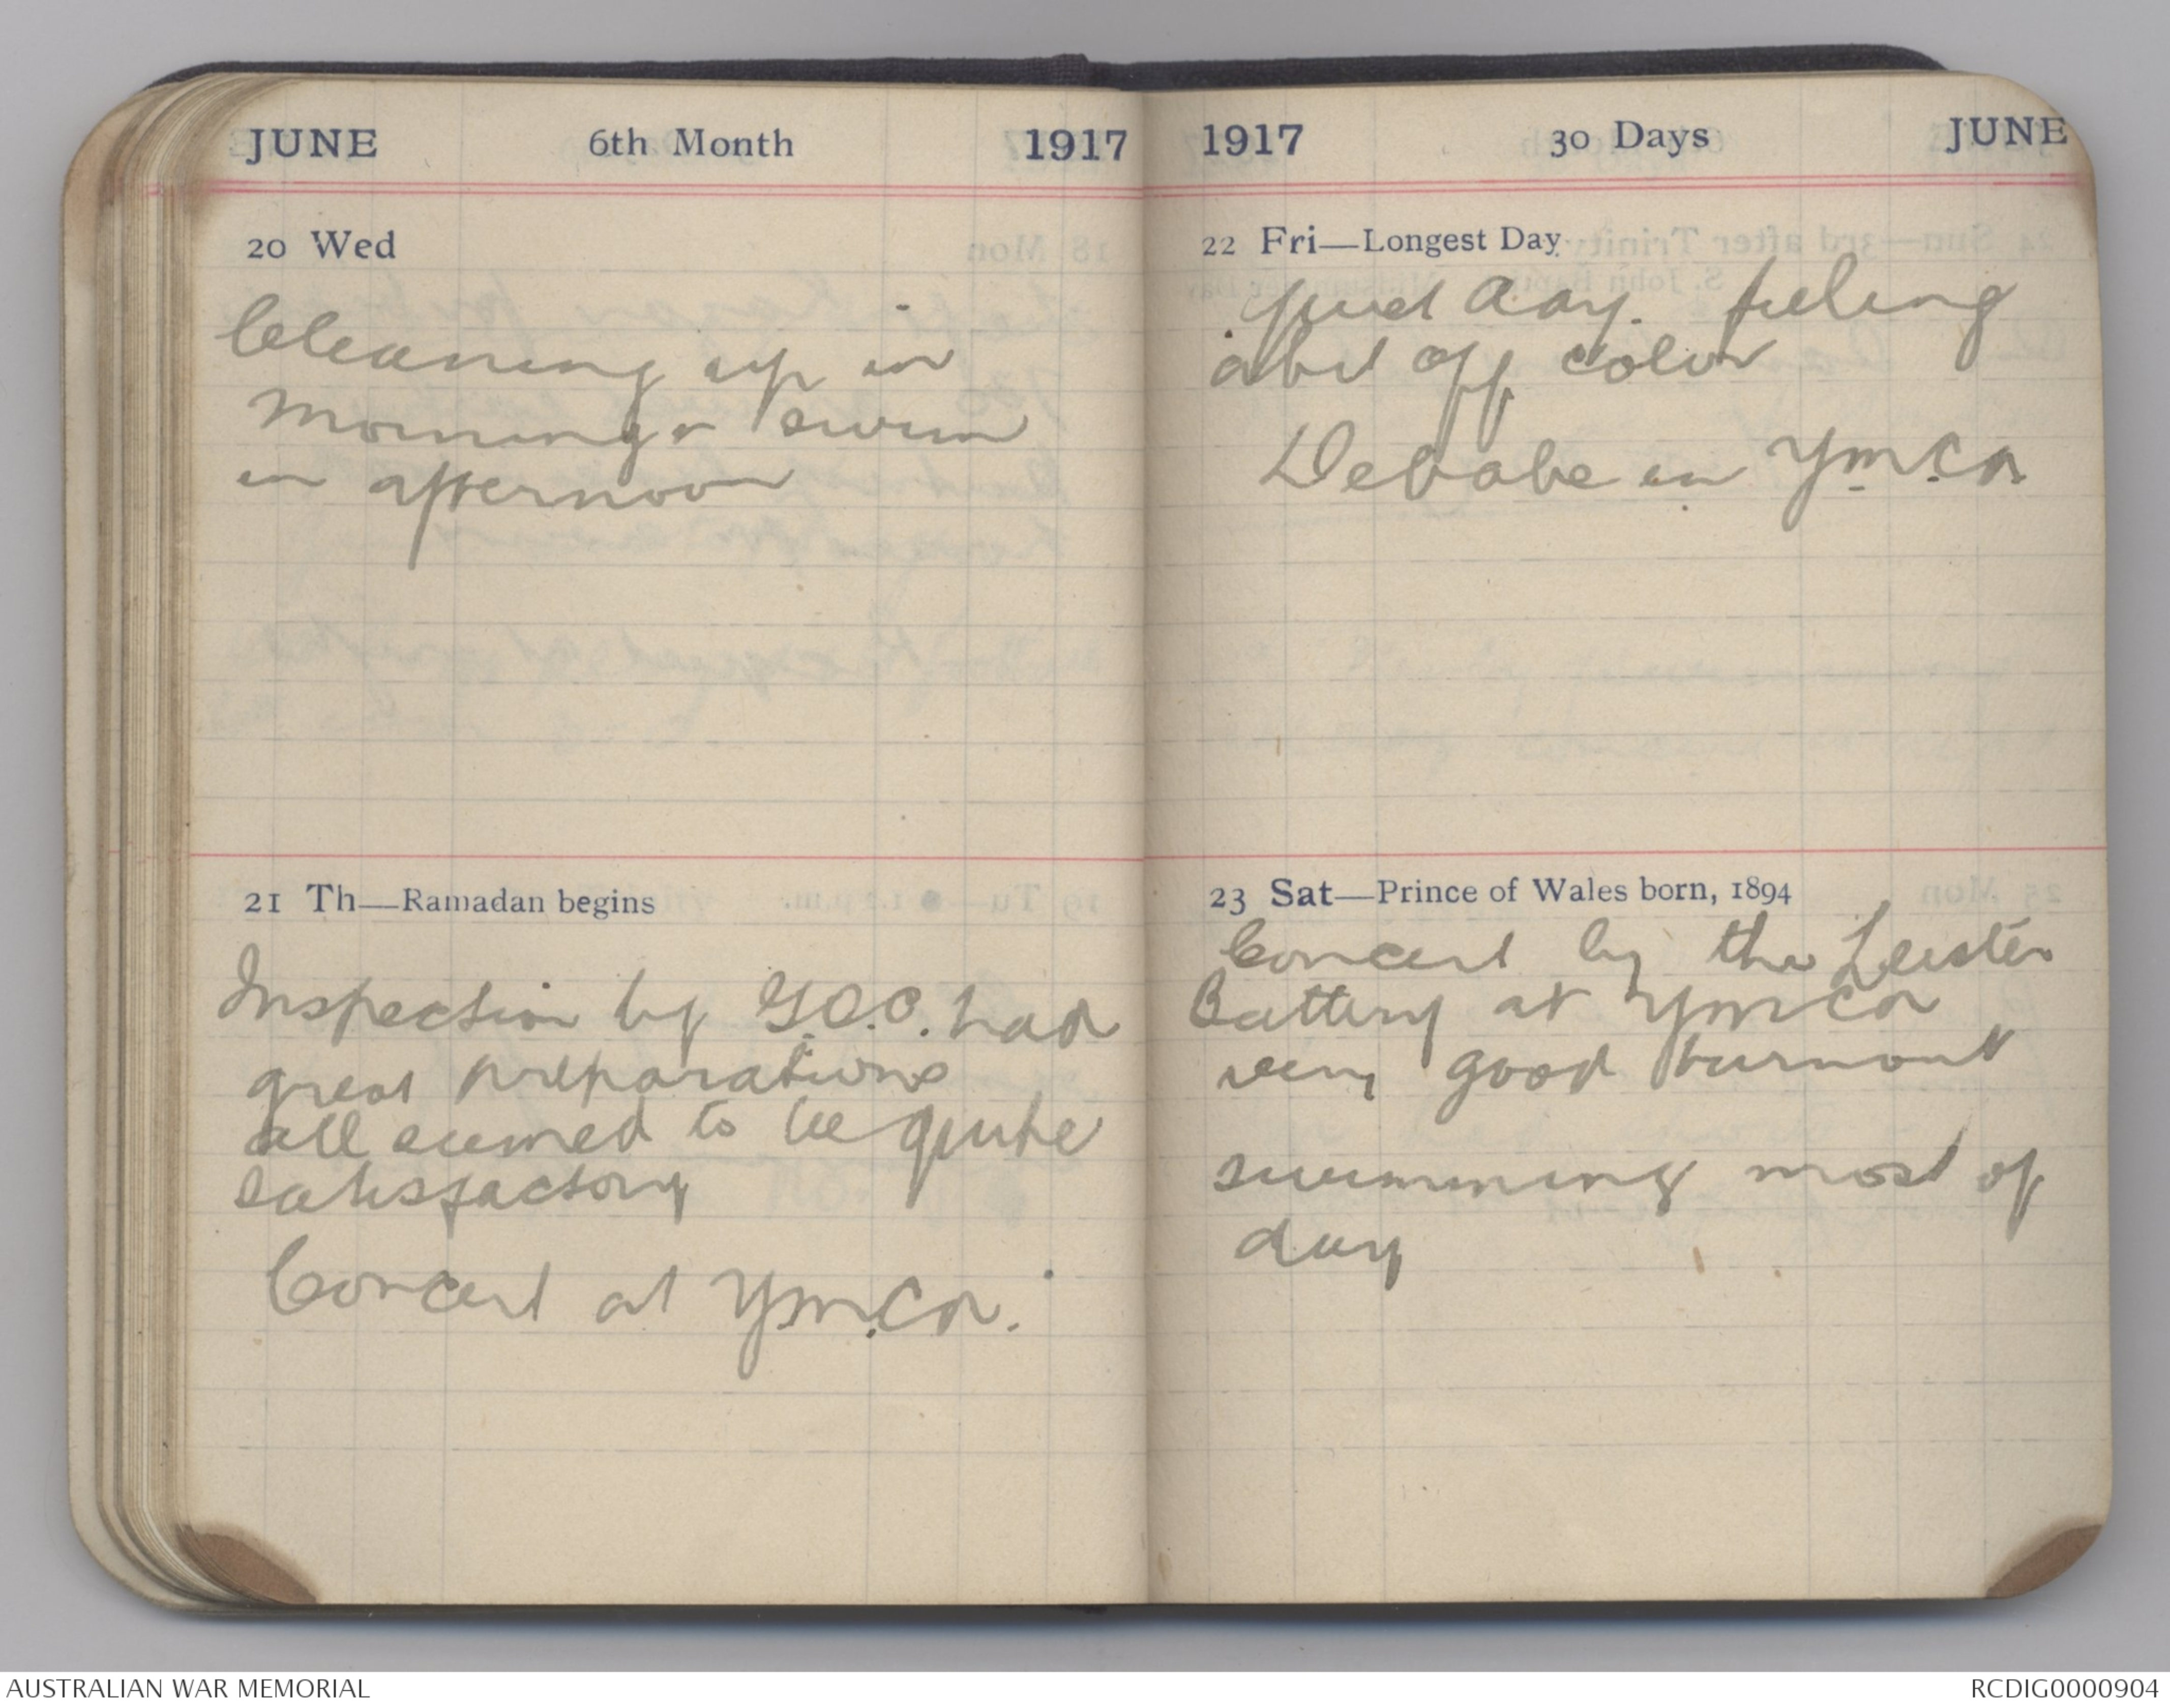 JUNE 6th Month 1917
20 Wed
Cleaning up in
morning & swim
in afternoon
21 Th—Ramadan begins
Inspection by G.O.C. had
great preparations
all seemed to be quite
satisfactory
Concert at Y.M.C.A.
1917 30 Days JUNE
22 Fri—Longest Day
Quiet day. feeling
abit off color
Debate in Y.M.C.A.
23 Sat—Prince of Wales born, 1894
Concert by the Leister
Battery at YMCA
very good turnout
swimming most of
day
AUSTRALIAN WAR MEMORIAL
RCDIG0000904